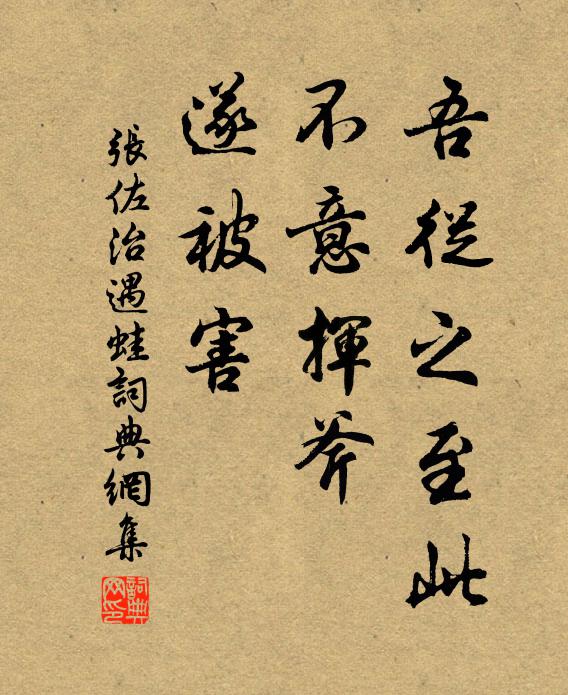 吾從之至此
不意揮斧
遂被害
張佐治遇蛙詞典網集
詞典網印